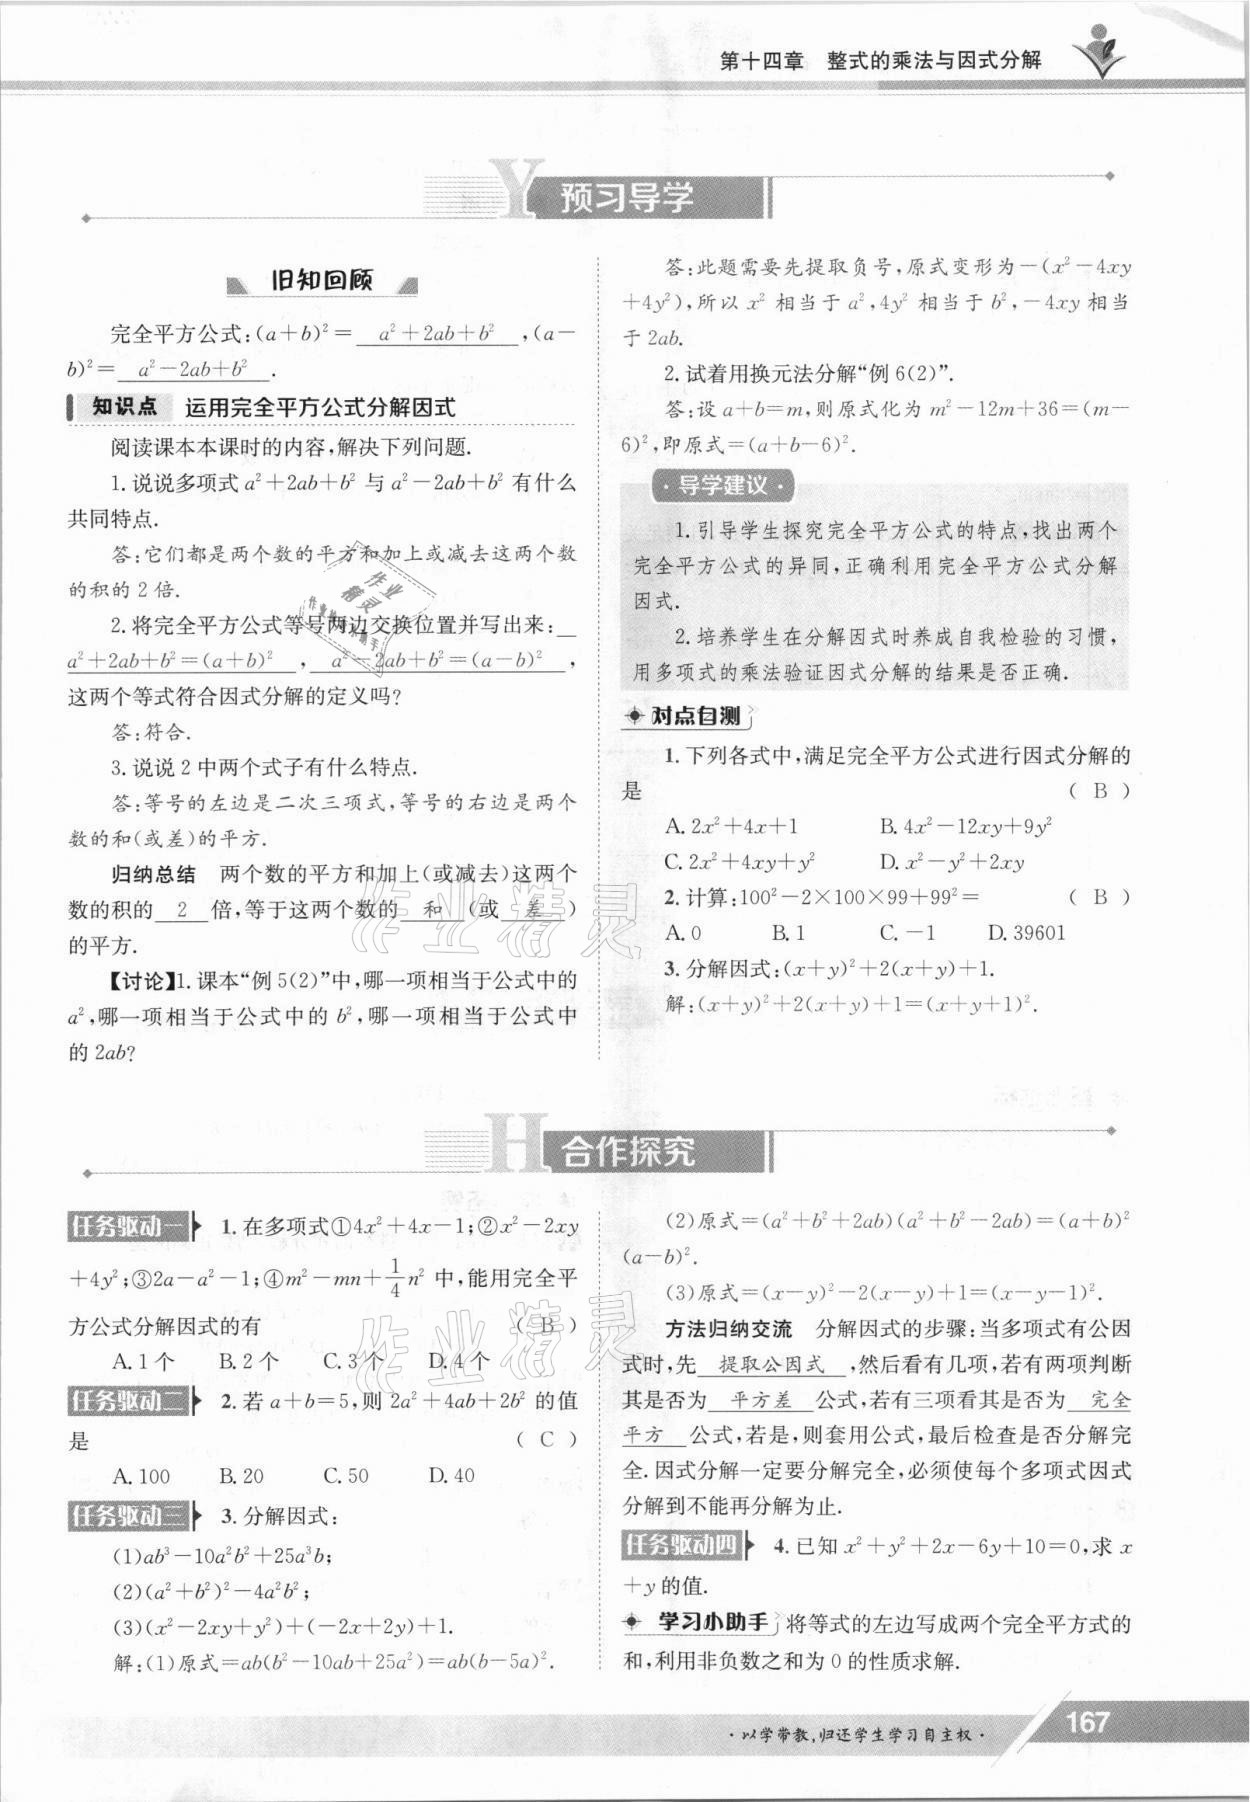 第十四章 整式的乘法与因式分解
Y 预习导学
旧知回顾
完全平方公式:(a+b)²= a²+2ab+b² ,(a-
b)²= a²-2ab+b² .
知识点 运用完全平方公式分解因式
阅读课本本课时的内容,解决下列问题.
1.说说多项式a²+2ab+b²与a²-2ab+b²有什么
共同特点.
答:它们都是两个数的平方和加上或减去这两个数
的积的2倍.
2.将完全平方公式等号两边交换位置并写出来:
a²+2ab+b²=(a+b)² , a²-2ab+b²=(a-b)² ,
这两个等式符合因式分解的定义吗?
答:符合.
3.说说2中两个式子有什么特点.
答:等号的左边是二次三项式,等号的右边是两个
数的和(或差)的平方.
归纳总结 两个数的平方和加上(或减去)这两个
数的积的 2 倍,等于这两个数的 和 (或 差 )
的平方.
【讨论】1.课本“例5(2)”中,哪一项相当于公式中的
a²,哪一项相当于公式中的b²,哪一项相当于公式中
的2ab?
答:此题需要先提取负号,原式变形为-(x²-4xy
+4y²),所以x²相当于a²,4y²相当于b²,-4xy相当
于2ab.
2.试着用换元法分解“例6(2)”.
答:设a+b=m,则原式化为m²-12m+36=(m-
6)²,即原式=(a+b-6)².
·导学建议·
1.引导学生探究完全平方公式的特点,找出两个
完全平方公式的异同,正确利用完全平方公式分解
因式.
2.培养学生在分解因式时养成自我检验的习惯,
用多项式的乘法验证因式分解的结果是否正确.
对点自测
1.下列各式中,满足完全平方公式进行因式分解的
是 ( B )
A.2x²+4x+1 B.4x²-12xy+9y²
C.2x²+4xy+y² D.x²-y²+2xy
2.计算:100²-2×100×99+99²= ( B )
A.0 B.1 C.-1 D.39601
3.分解因式:(x+y)²+2(x+y)+1.
解:(x+y)²+2(x+y)+1=(x+y+1)².
H 合作探究
任务驱动一 1.在多项式①4x²+4x-1;②x²-2xy
+4y²;③2a-a²-1;④m²-mn+1/4n²中,能用完全平
方公式分解因式的有 ( B )
A.1个 B.2个 C.3个 D.4个
任务驱动二 2.若a+b=5,则2a²+4ab+2b²的值
是 ( C )
A.100 B.20 C.50 D.40
任务驱动三 3.分解因式:
(1)ab³-10a²b²+25a³b;
(2)(a²+b²)²-4a²b²;
(3)(x²-2xy+y²)+(-2x+2y)+1.
解:(1)原式=ab(b²-10ab+25a²)=ab(b-5a)².
(2)原式=(a²+b²+2ab)(a²+b²-2ab)=(a+b)²
(a-b)².
(3)原式=(x-y)²-2(x-y)+1=(x-y-1)².
方法归纳交流 分解因式的步骤:当多项式有公因
式时,先 提取公因式 ,然后看有几项,若有两项判断
其是否为 平方差 公式,若有三项看其是否为 完全
平方 公式,若是,则套用公式,最后检查是否分解完
全.因式分解一定要分解完全,必须使每个多项式因式
分解到不能再分解为止.
任务驱动四 4.已知x²+y²+2x-6y+10=0,求x
+y的值.
学习小助手 将等式的左边写成两个完全平方式的
和,利用非负数之和为0的性质求解.
·以学带教,归还学生学习自主权·
167
作业精灵
作业精灵
作业精灵